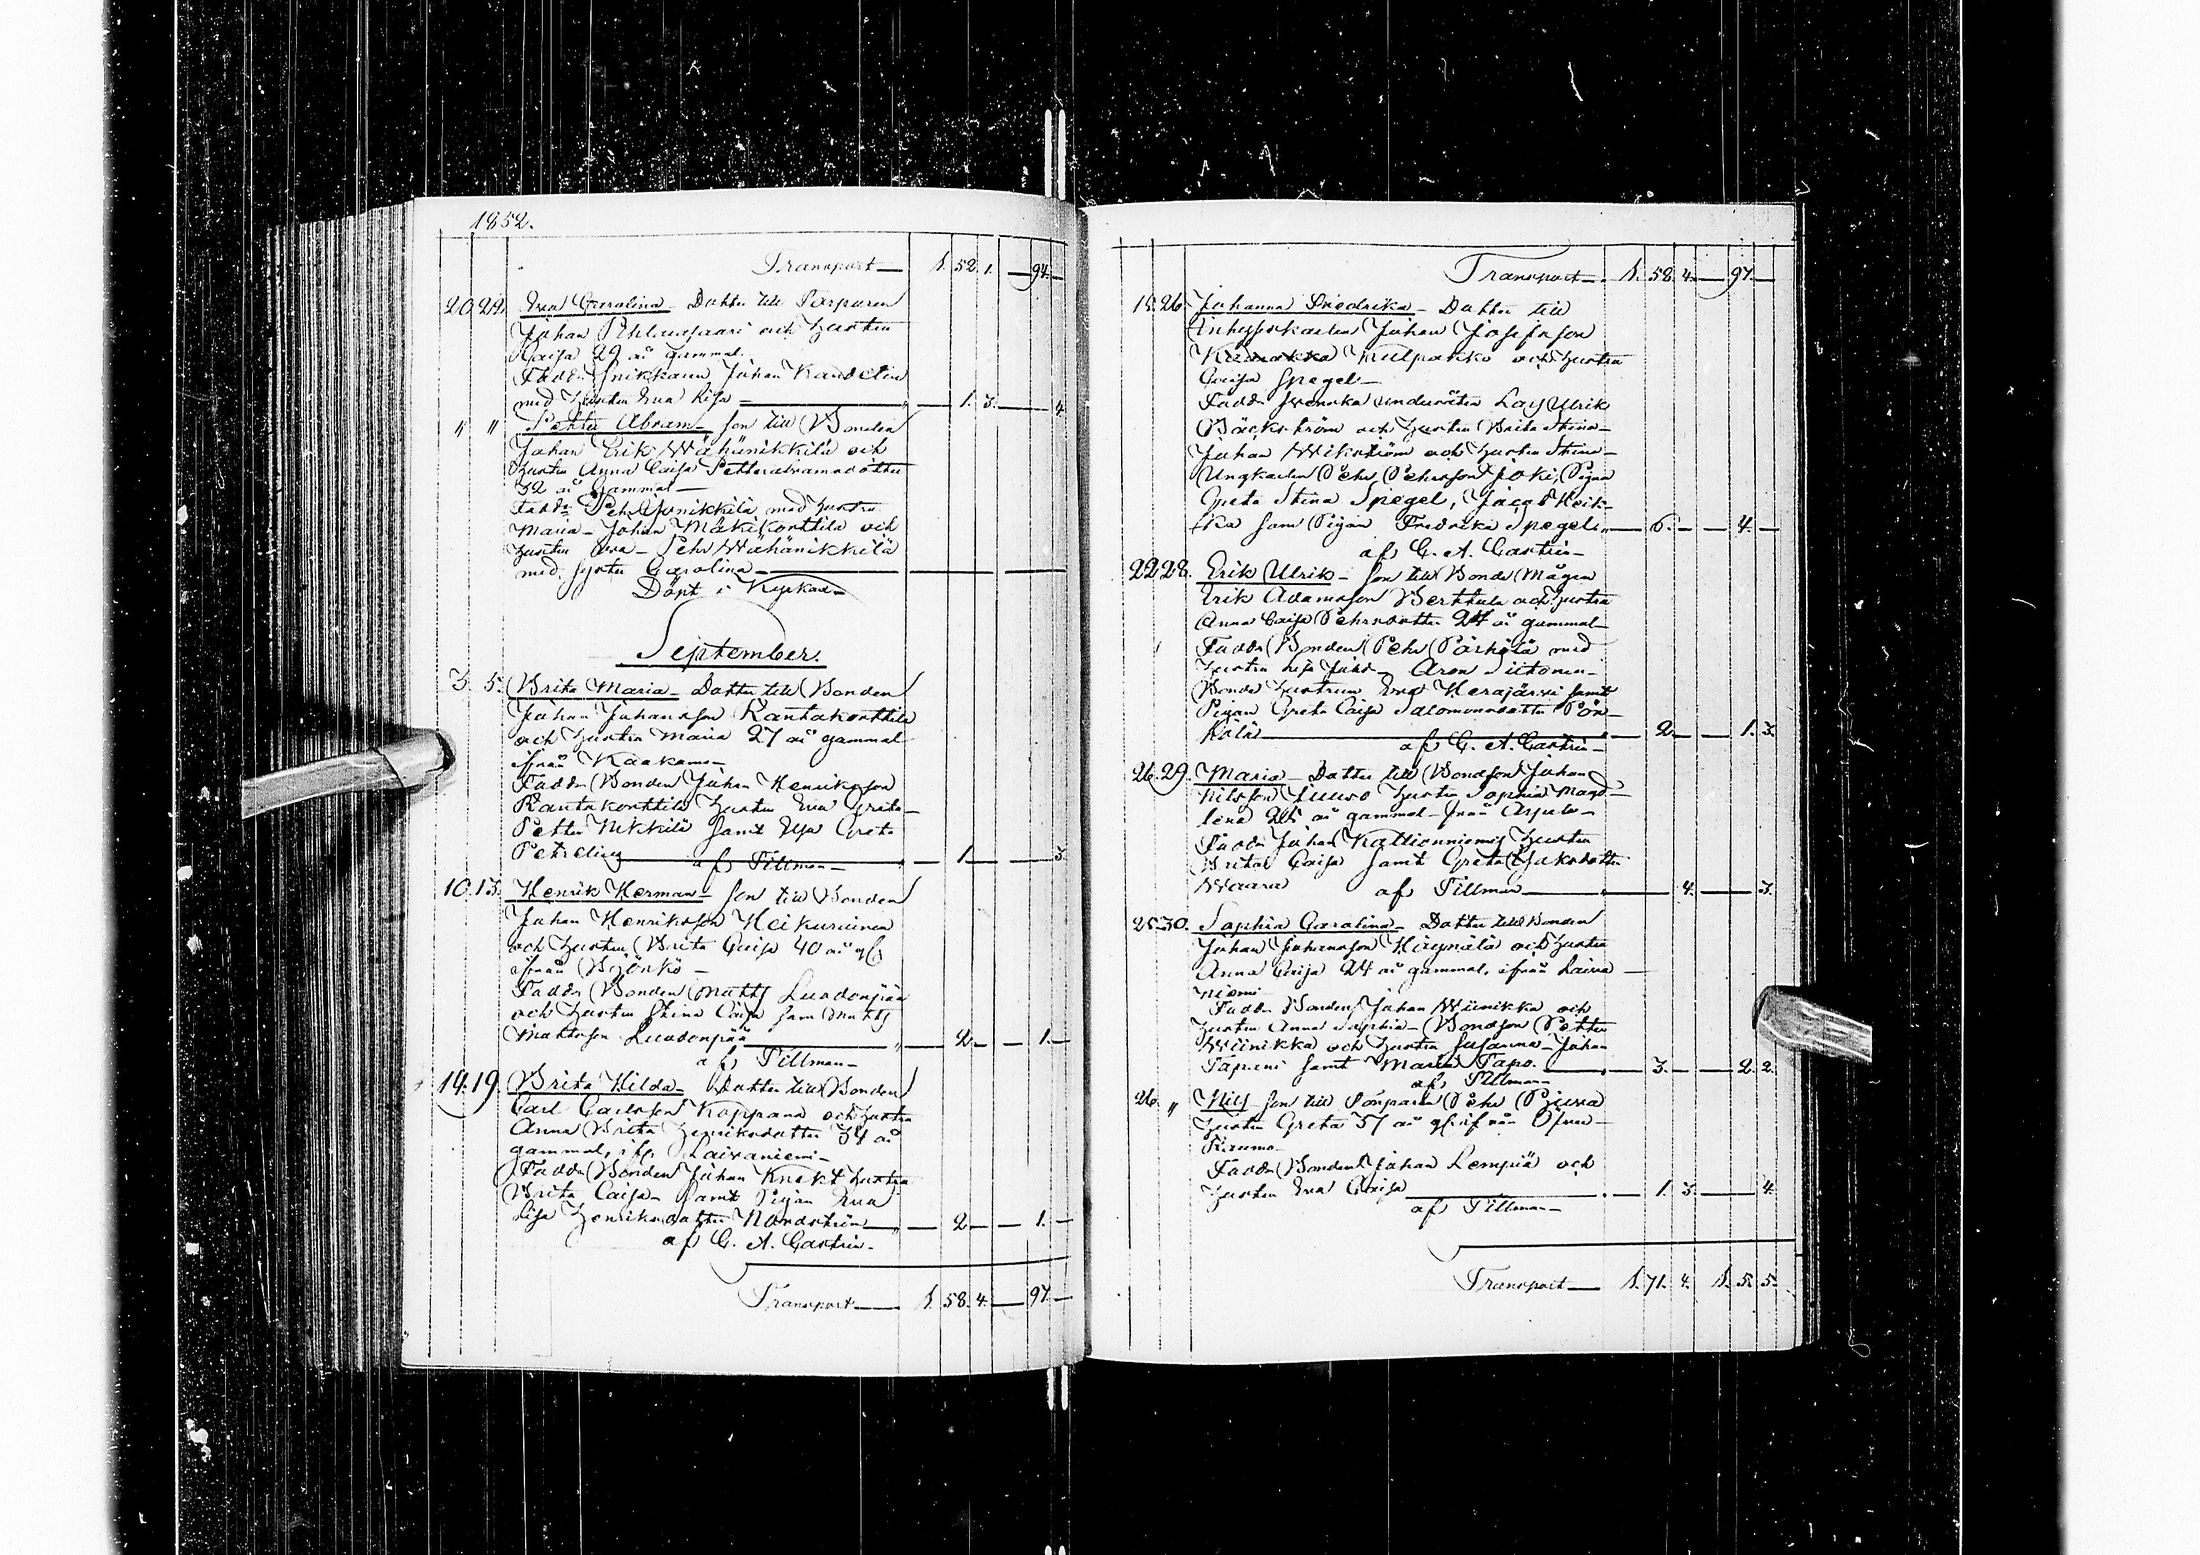 1852.
Transport 1. 52. 1. — 94. —
20. 22. Eva Carolina Dotter till Torparen
Johan och hustru
Caisa 29 år gammal
Fadd. Snikkaren Johan Kandelin
med hustru Eva Lisa — 1. 3. — 4.
" " Petter Abram — Son till Bonden
Johan Erik Wähänikkilä och
hustru Anna Caisa Petter abramsdotter
32 år gammal —
Faddr Pehr Ylinikkilä med hustru
Maria — Johan Mäkikorttila och
hustru Eva — Pehr Wähänikkilä
med syster Carolina —
Döpt i Kyrkan —
September.
3. 5. Brita Maria — Dotter till Bonden
Johan Johansson Rantakorttila
och hustru Maria 27 år gammal
ifrån Kaakamo —
Faddr Bonden Johan Henriksson
Rantakorttila hustru Eva Greta —
Petter Nikkilä samt Greta
— 1. — 3.
af Tillman —
10. 13. Henrik Herman — Son till Bonden
Johan Henriksson Heikurinen
och hustru Brita Caisa 40 år gl
ifrån Björkö —
Faddr Bonden Matts Luodonpää
och hustru Stina Caisa samt Matts
Mattsson Luodonpää — 2 — 1. —
af Tillman —
14. 19. Brita Hilda — Dotter till Bonden
Carl Carlsson Koppana och hustru
Anna Brita Henriksdotter 34 år
gammal, ifr. Laivaniemi —
Faddr Bonden Johan Knekt hustru
Brita Caisa — samt Pigan Eva
Lisa Henriksdotter Nordström — 2 — 1. —
af C. A. Castrén —
Transport — 1. 58. 4. — 97. —
Transport — 1. 58. 4. — 97. —
18. 26. Johanna Fredrika — Dotter till
Inhyseskarlen Johan Josefsson
Kulpakko och hustru
Caisa Spegel —
Faddr Lars Ulrik
Bäckström och hustru Brita Stina —
Johan Wikström och hustru Stina —
Ungkarlen Pehr Pehrsson Joki, Pigan
Greta Stina Spegel, Jacob Heik-
ka sam Pigan Fredrika Spegel — 6. — 4. —
af C. A. Castrén —
22. 28. Erik Ulrik — Son till Bonde Mågen
Erik Adamsson Berttula och hustru
Anna Caisa Pehrsdotter 24 år gammal —
Faddr Bonden Pehr Pörhölä med
hustru Lisa — Aron Siitonen —
Bonde hustrun Eva Herajärvi samt
Pigan Greta Caisa Salomonsdotter Pör-
hölä — 2 — 1. 3.
af C. A. Castrén —
26. 29. Maria — Dotter till Bondson Johan
Nilsson Luuso hustru Sophia Magd-
lena år gammal — från Arpela —
Faddr Johan Kallionniemi hustru
Brita Caisa samt Greta Jakobsdotter
Waara — 4. — 3.
af Tillman —
25. 30. Sophia Carolina — Dotter till Bonden
Johan Johansson Häynälä och hustru
Anna Caisa 24 år gammal, ifrån Laiva —
niemi
Faddr Bonden Johan Wiinikka och
hustru Anna Sophia — Bondson Petter
Wiinikka och hustru Susanna — Johan
Tapani samt Maria Tapo. — 3. — 2. 2.
af Tillman —
26. " Nils Son till Torparen Pehr
hustru Greta 37 år gl. ifrån Öfver —
Rauma —
Faddr Bonden Johan Lempiä och
hustru Eva Caisa — 1. 3. — 4.
af Tillman —
Transport — 1. 71. 4. 1. 5. 5.